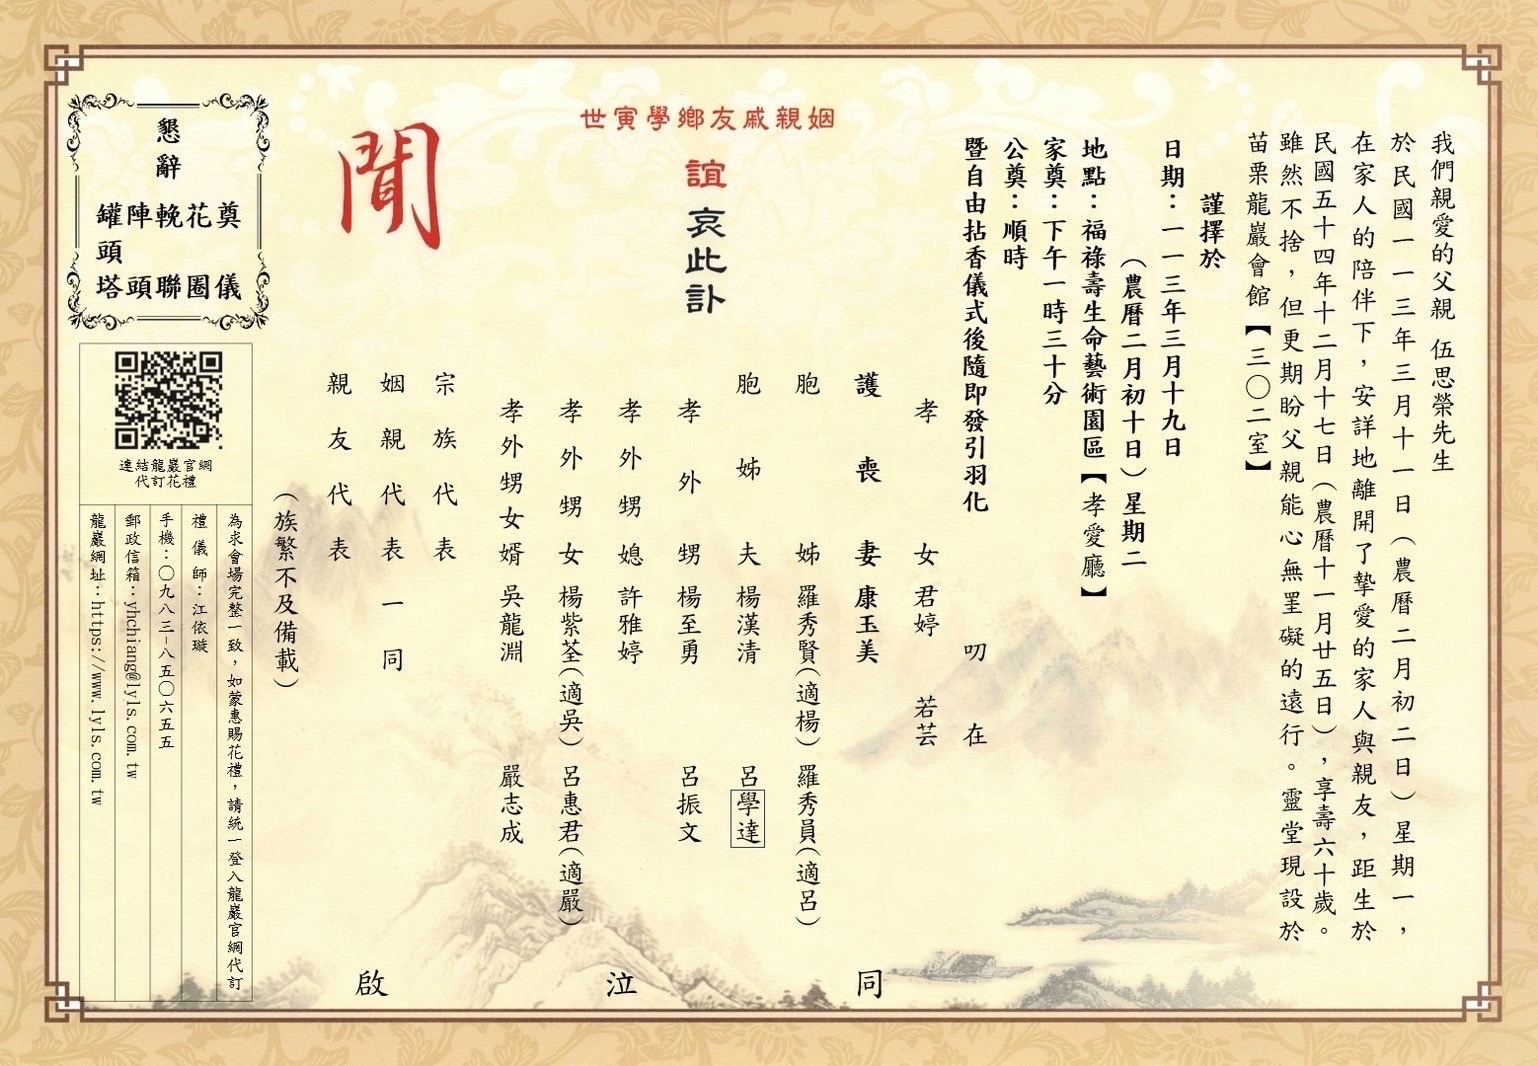 我們親愛的父親 伍思榮先生
於民國一一三年三月十一日（農曆二月初二日）星期一，
在家人的陪伴下，安詳地離開了摯愛的家人與親友，距生於
民國五十四年十二月十七日（農曆十一月廿五日），享壽六十歲。
雖然不捨，但更期盼父親能心無罣礙的遠行。靈堂現設於
苗栗龍巖會館【三〇二室】
謹擇於
日期：一一三年三月十九日
（農曆二月初十日）星期二
地點：福祿壽生命藝術園區【孝愛廳】
家奠：下午一時三十分
公奠：順時
暨自由拈香儀式後隨即發引羽化
叨在
姻親戚友鄉學寅世
誼 哀此訃
聞
孝女 君婷 若芸
護喪妻 康玉美
胞姊 羅秀賢（適楊） 羅秀員（適呂）
胞姊夫 楊漢清 呂學達
孝外甥 楊至勇 呂振文
孝外甥媳 許雅婷
孝外甥女 楊紫荃（適吳） 呂惠君（適嚴）
孝外甥女婿 吳龍淵 嚴志成
宗族代表
姻親代表一同
親友代表
（族繁不及備載）
同泣啟
懇辭
奠儀
花圈
輓聯
陣頭
罐頭塔
連結龍巖官網
代訂花禮
為求會場完整一致，如蒙惠賜花禮，請統一登入龍巖官網代訂
禮儀師：江依璇
手機：〇九八三-八五〇六五五
郵政信箱：yhchiang@lyls.com.tw
龍巖網址：https://www.lyls.com.tw